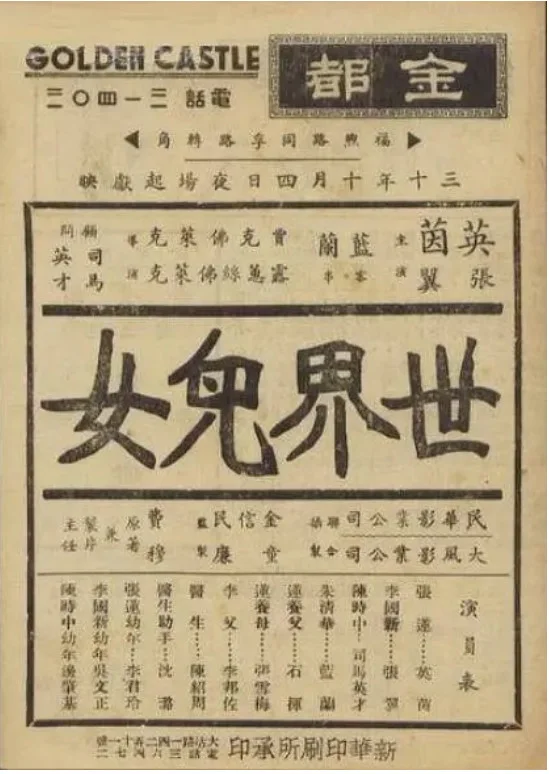 GOLDEN CASTLE
金都
電話
福煦路同孚路轉角
三十年十月四日夜場起獻映
英茵
張翼
主演
藍蘭
客串
賈克佛萊克
露蕙絲佛萊克
導演
司馬英才
顧問
世界兒女
民華影業公司
大風影業公司
聯合
攝製
金信民
童廉
監製
費穆
原著
兼
製片
主任
演員表
張蓮……英茵
李國新……張翼
陳時中……司馬英才
朱清華……藍蘭
蓮養父……石揮
蓮養母……張雪梅
李父……李邦佐
醫生……陳紹周
醫生助手……沈潞
張蓮幼年……李君玲
李國新幼年 吳文正
陳時中幼年 邊肇基
新華印刷所承印